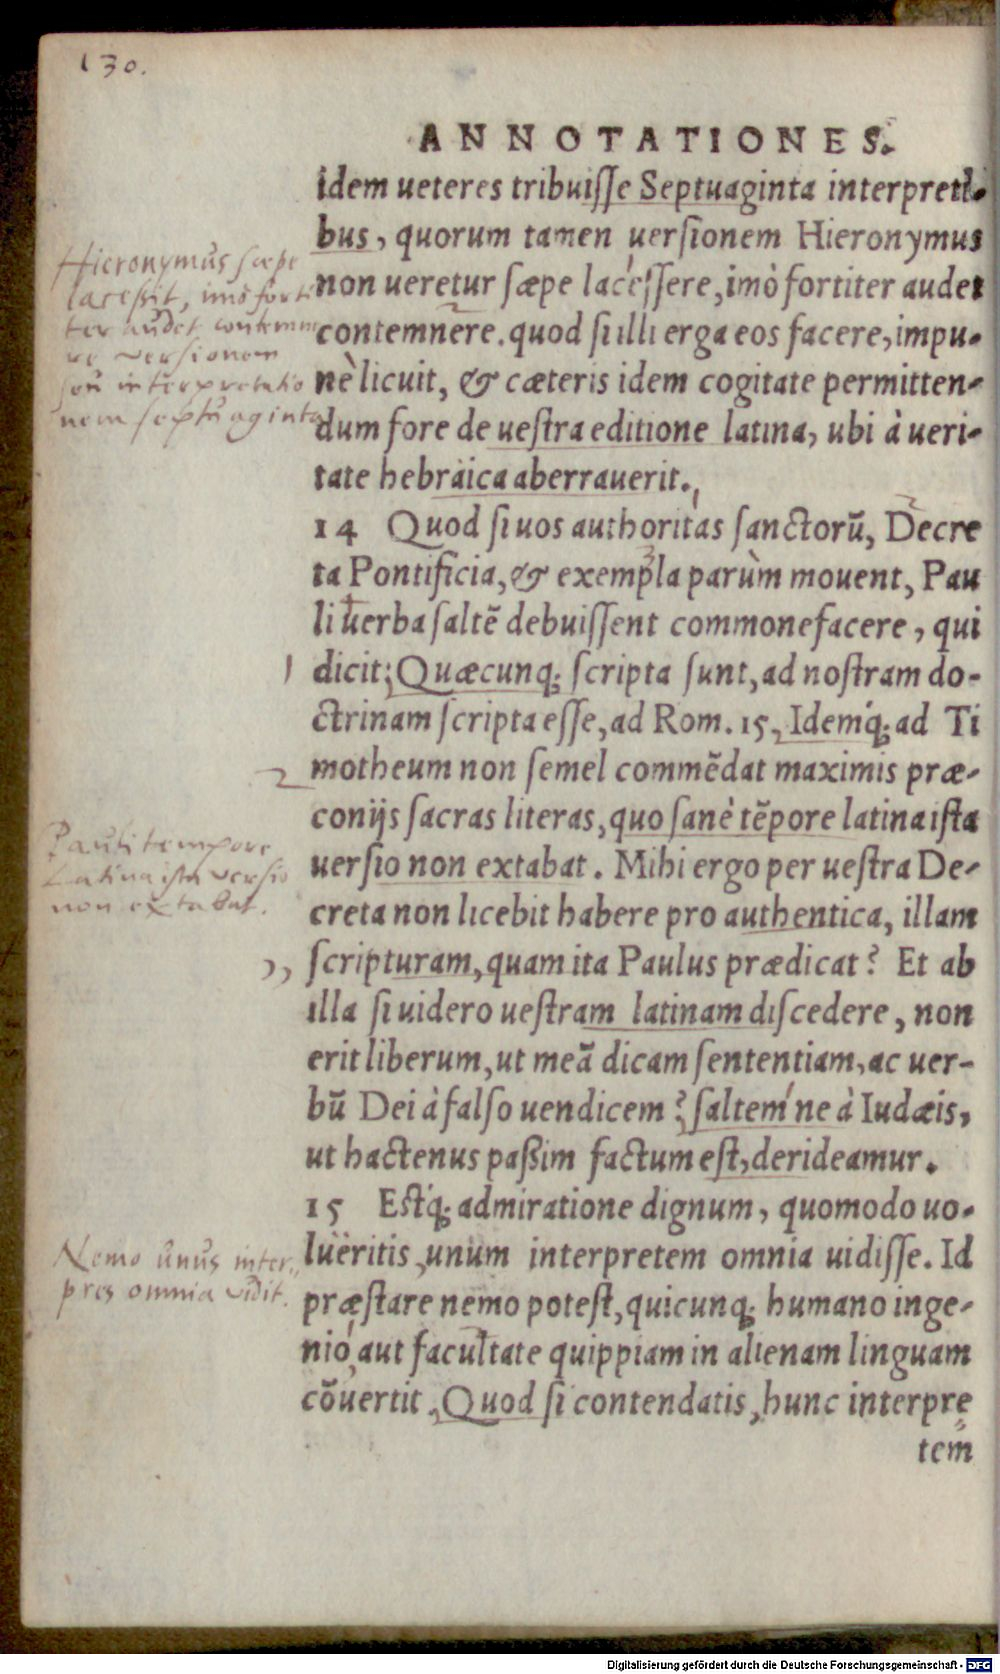 130.
ANNOTATIONES.
idem ueteres tribuisſe Septuaginta interpreti-
bus, quorum tamen uerſionem Hieronymus
non ueretur ſæpe laceſſere, imò fortiter audet
contemnere. quod ſi illi erga eos facere, impu-
nè licuit, & cæteris idem cogitate permitten-
dum fore de ueſtra editione latina, ubi à ueri-
tate hebraica aberrauerit.
Hieronymus sæpe
lacessit, imò forti
ter audet contemne
re versionem
seu interpretatio
nem septuaginta
14 Quod ſi uos authoritas ſanctorũ, Decre
ta Pontificia, & exempla parùm mouent, Pau
li uerba ſaltẽ debuiſſent commonefacere, qui
dicit; Quæcunq; ſcripta ſunt, ad noſtram do-
ctrinam ſcripta eſſe, ad Rom. 15, Idemq́; ad Ti
motheum non ſemel commẽdat maximis præ-
conijs ſacras literas, quo ſanè tẽpore latina iſta
uerſio non extabat. Mihi ergo per ueſtra De-
creta non licebit habere pro authentica, illam
ſcripturam, quam ita Paulus prædicat? Et ab
illa ſi uidero ueſtram latinam diſcedere, non
erit liberum, ut meã dicam ſententiam, ac uer-
bũ Dei à falſo uendicem? ſaltem ne à Iudæis,
ut hactenus paßim factum eſt, derideamur.
Pauli tempore
Latina ista versio
non extabat.
15 Eſtq́; admiratione dignum, quomodo uo-
lueritis, unum interpretem omnia uidiſſe. Id
præſtare nemo poteſt, quicunq; humano inge-
nio, aut facultate quippiam in alienam linguam
cõuertit. Quod ſi contendatis, hunc interpre
tem
Nemo unus inter-
pres omnia vidit.
Digitalisierung gefördert durch die Deutsche Forschungsgemeinschaft - DFG